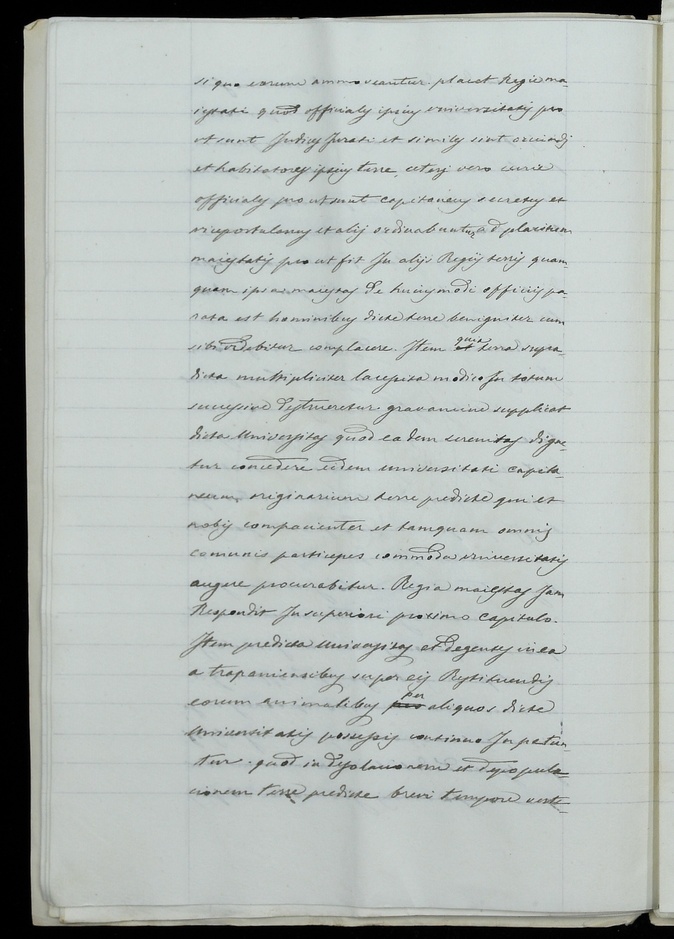 si quo eorum ammoveantur. placet Regie ma-
iestati quod officiales ipsius universitatis pro
ut sunt Judices Jurati et similes sint oriundi
et habitatores ipsius terre, ceteri vero curie
officiales prout sunt capitaneus secretus et
viceportulanus et alij ordinabuntur ad placitum
maiestatis prout fit In alijs Regijs terris quam-
quam ipsa maiestas de huiusmodi officijs pa-
rata est hominibus dicte terre benigniter cum
sibi videbitur complacere. Item quia terra supra-
dicta multipliciter lacessita modico In totum
successive destrueretur gravamine supplicat
dicta Universitas quod eadem serenitas digne-
tur concedere eidem universitati capita-
neum originarium terre predicte qui et
nobis compacienter et tamquam omnis
comunis particeps commoda universitatis
augere procurabitur. Regia maiestas Jam
Respondit In superiori proximo capitulo.
Item predicta Universitas et degentes in ea
a trapaniensibus super eis Restituendis
eorum animalibus per aliquos dicte
Universitatis possessis continuo In petun-
tur. quod in desolacionem et depopula-
cionem terre predicte brevi tempore verte-